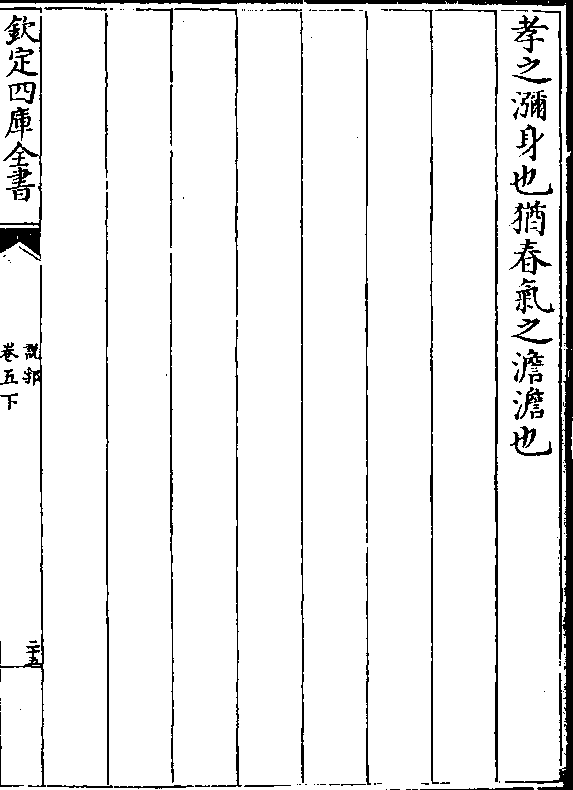 孝之瀰身也猶春氣之澹澹也
欽定四庫全書
說郛
卷五下
二十五